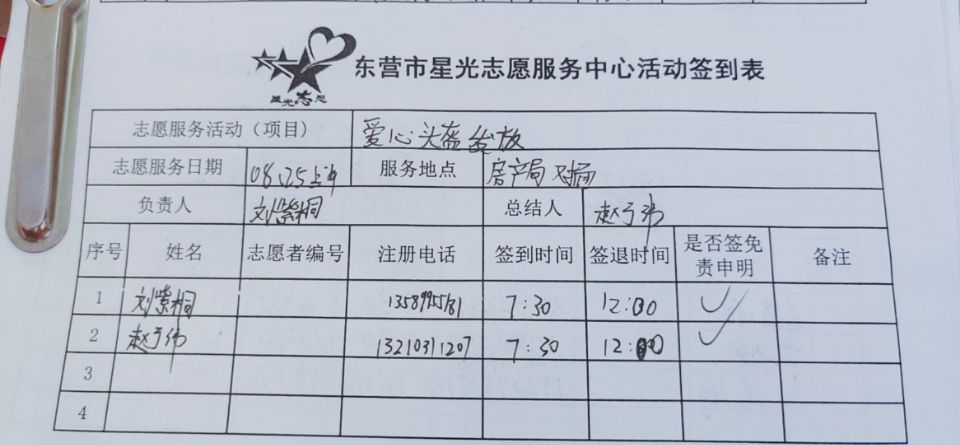 星光志愿
东营市星光志愿服务中心活动签到表
志愿服务活动（项目） 爱心头盔发放
志愿服务日期 08.25上午 服务地点 房产局对面
负责人 刘紫桐 总结人 赵予祎
序号 姓名 志愿者编号 注册电话 签到时间 签退时间 是否签免责申明 备注
1 刘紫桐 7:30 12:00 ✓
2 赵予祎 13210311207 7:30 12:00 ✓
3
4